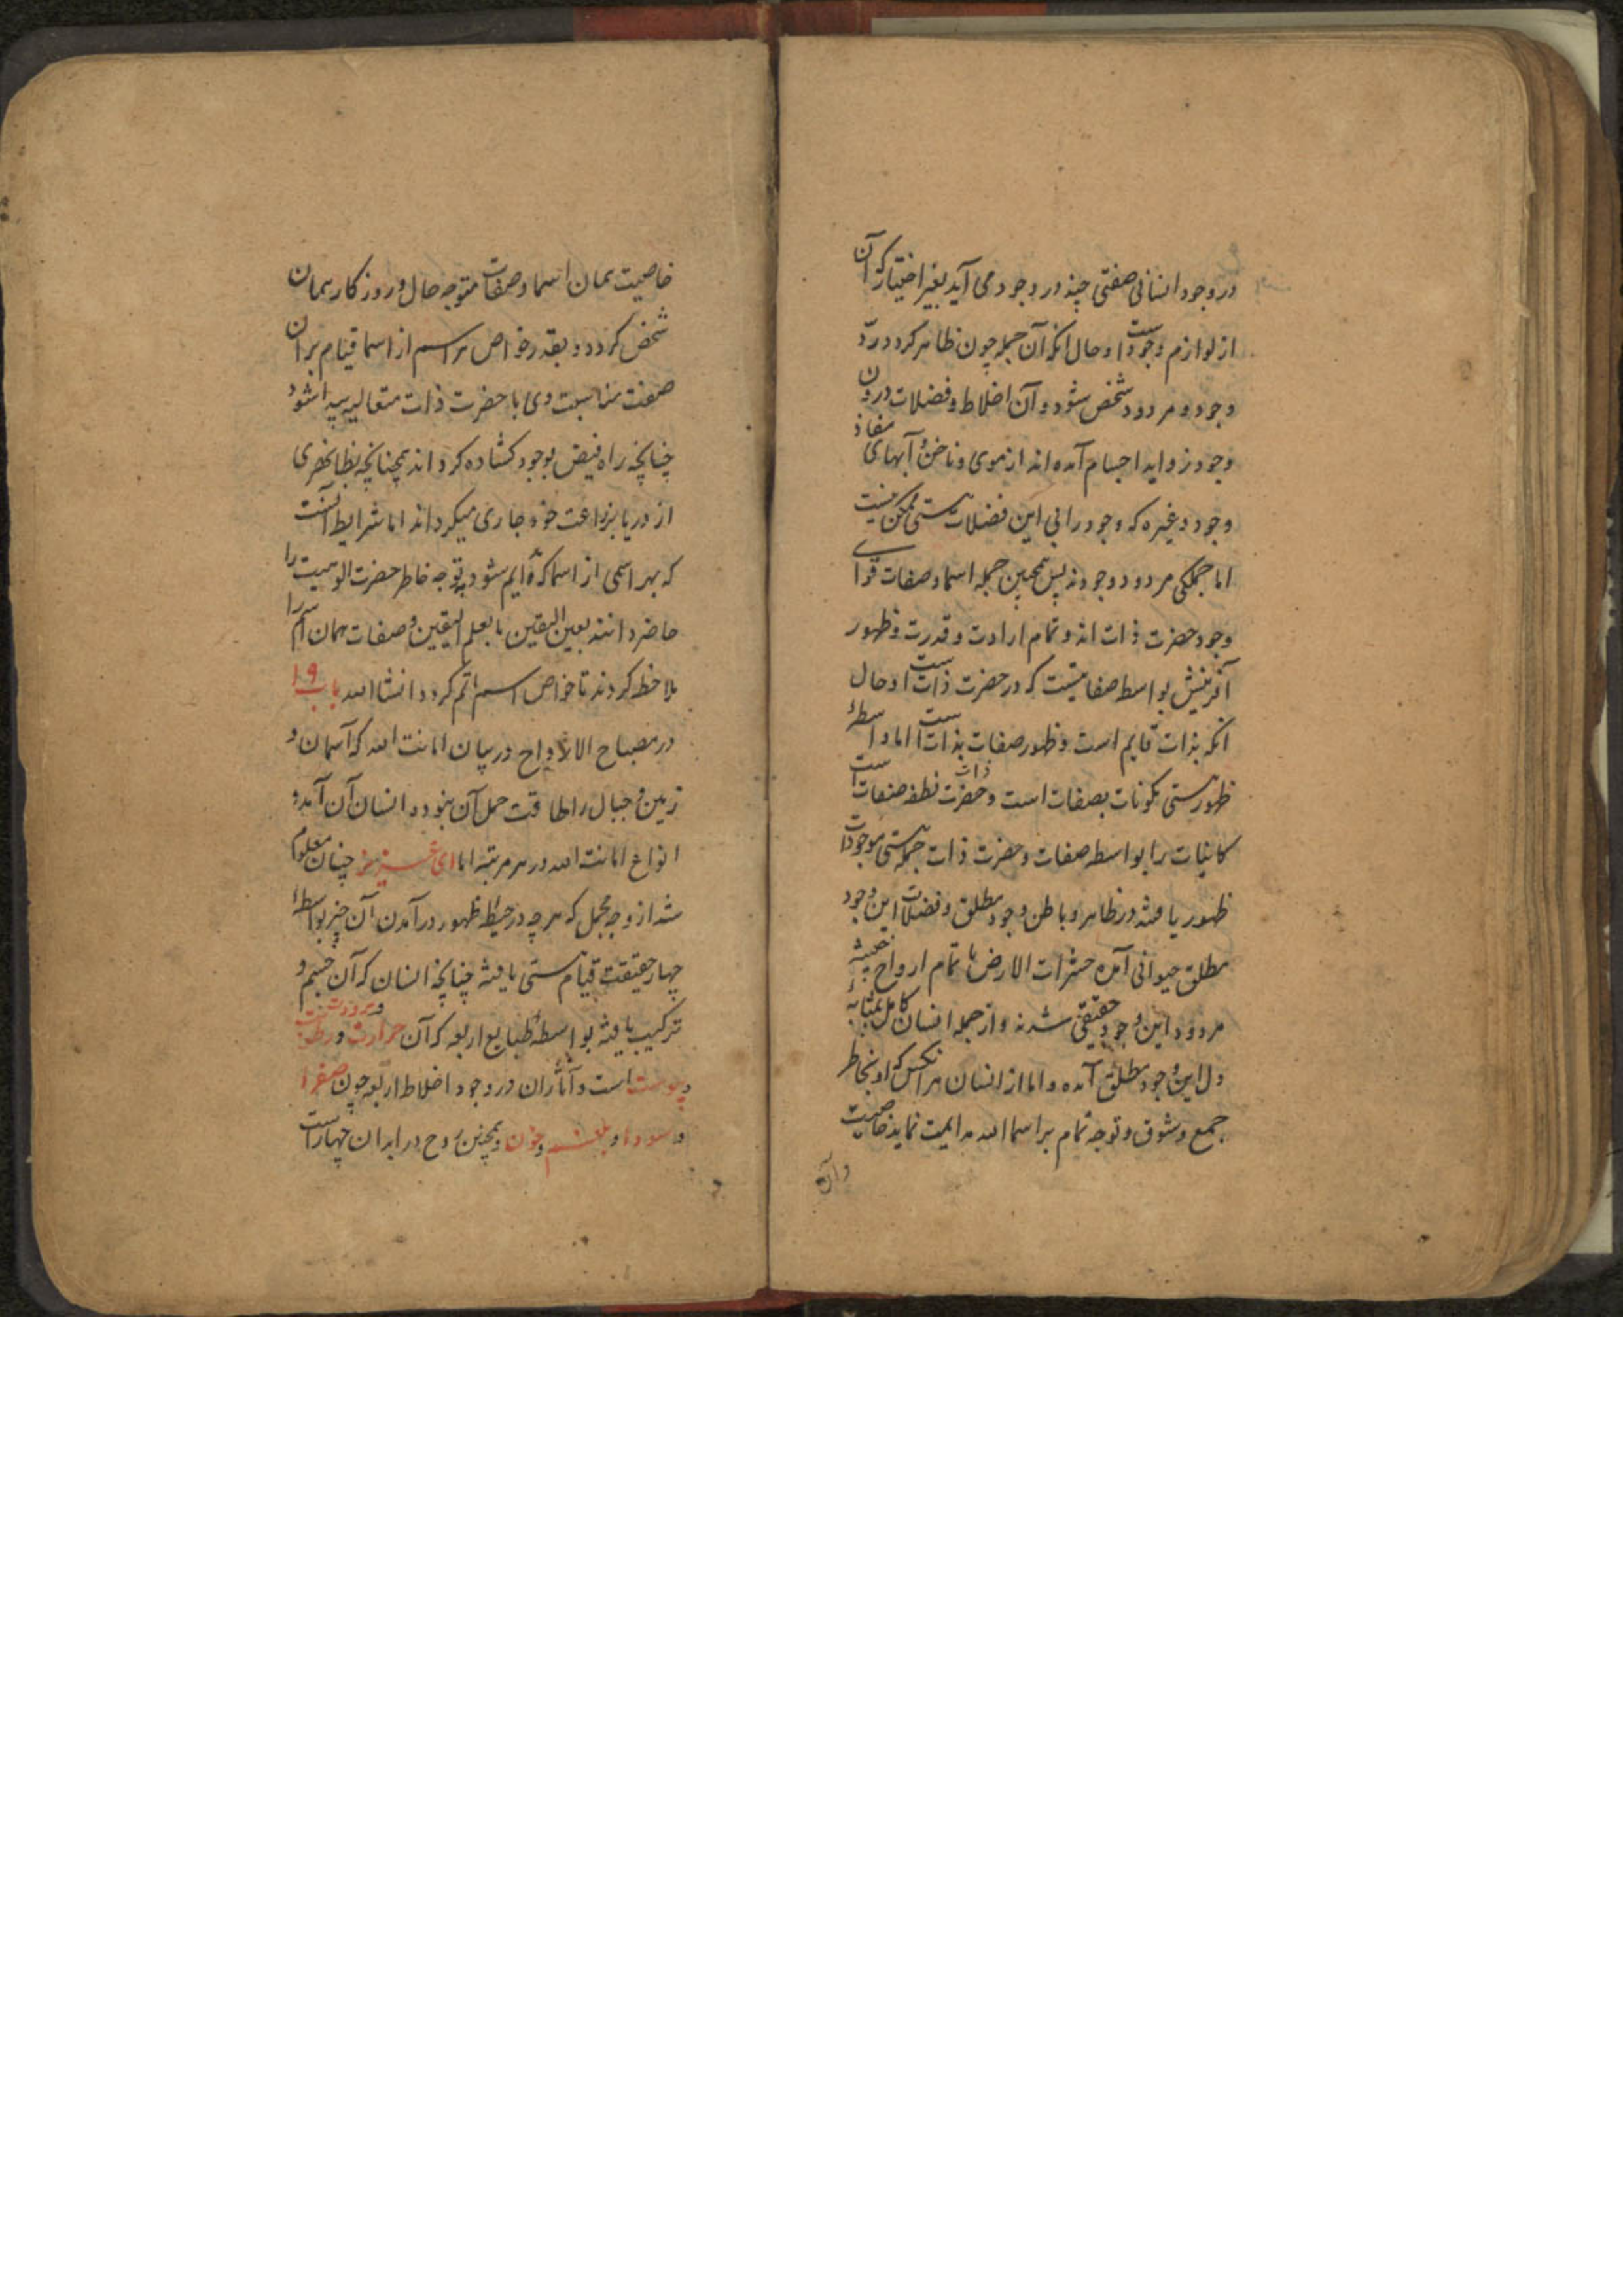 در وجود انسانی صفتی چند در وجود می آید بغیر اختیار که آن
از لوازم وجود است و حال انکه آن جمله چون ظاهر کردد ردّ
وجود و مردود شخص شود و آن اخلاط و فضلات درون
وجود زواید اجسام آمده اند از موی و ناخن و آبهای
وجود و غیره که وجود را بی این فضلات هستی ممکن نیست
اما جملکی مردود وجودند پس همچنین جمله اسما و صفات قوای
وجود حضرت ذات اند و تمام ارادت و قدرت و ظهور
آفرینش بواسطه صفاتیست که در حضرت ذات است و حال
انکه بذات قایم است و ظهور صفات بذات است اما واسطهٔ
ظهور هستی مکونات بصفات است و حضرت ذات نطفه صفات است
کاینات را بواسطه صفات و حضرت ذات جمله هستی موجودات
ظهور یافته در ظاهر و باطن وجود مطلق و فضلات این وجود
مطلق حیوانی آمده حشرات الارض با تمام ارواح خبیثه
مردود این وجود حقیقی شدند و از جمله انسان کامل بمثابهٔ
دل این وجود مطلق آمده و اما از انسان هر انکس که او بخاطر
جمع و شوق و توجه تمام بر اسما الله مدایمت نماید خاصیت
خاصیت همان اسما و صفات متوجه حال و روزکار همان
شخص کردد و بقدر خواص هر اسم از اسما قیام بران
صفت مناسبت وی با حضرت ذات متعالیه پیدا شود
چنانچه راه فیض بوجود کشاده کرداند همچنانچه نظا نهری
از دریا بزراعت خود جاری میکرداند اما شرایط آنست
که بهر اسمی از اسما که قایم شود بتوجه خاطر حضرت الوهیت را
حاضر دانند بعین الیقین یا بعلم الیقین و صفات همان اسم را
ملاحظه کردند تا خواص اسم اتم کردد انشا الله باب ۱۹
در مصباح الارواح در بیان امانت الله که آسمان و
زمین و جبال را طاقت حمل آن نبود و انسان آن آمد و
انواع امانت الله در هر مرتبه اما ای عزیز من چنان معلوم
شد از وجه مجمل که هر چه در حیطه ظهور در آمدن آن چیز بواسطهٔ
چهار حقیقت قیام هستی یافته چنانچه انسان که آن جسم و
ترکیب یافته بواسطهٔ طبایع اربعه که آن حرارت و برودت و رطوبت
و یبوست است و آثار ان در وجود اخلاط اربعه چون صفرا
و سودا و بلغم و خون و همچنین روح در ابدان چهار است